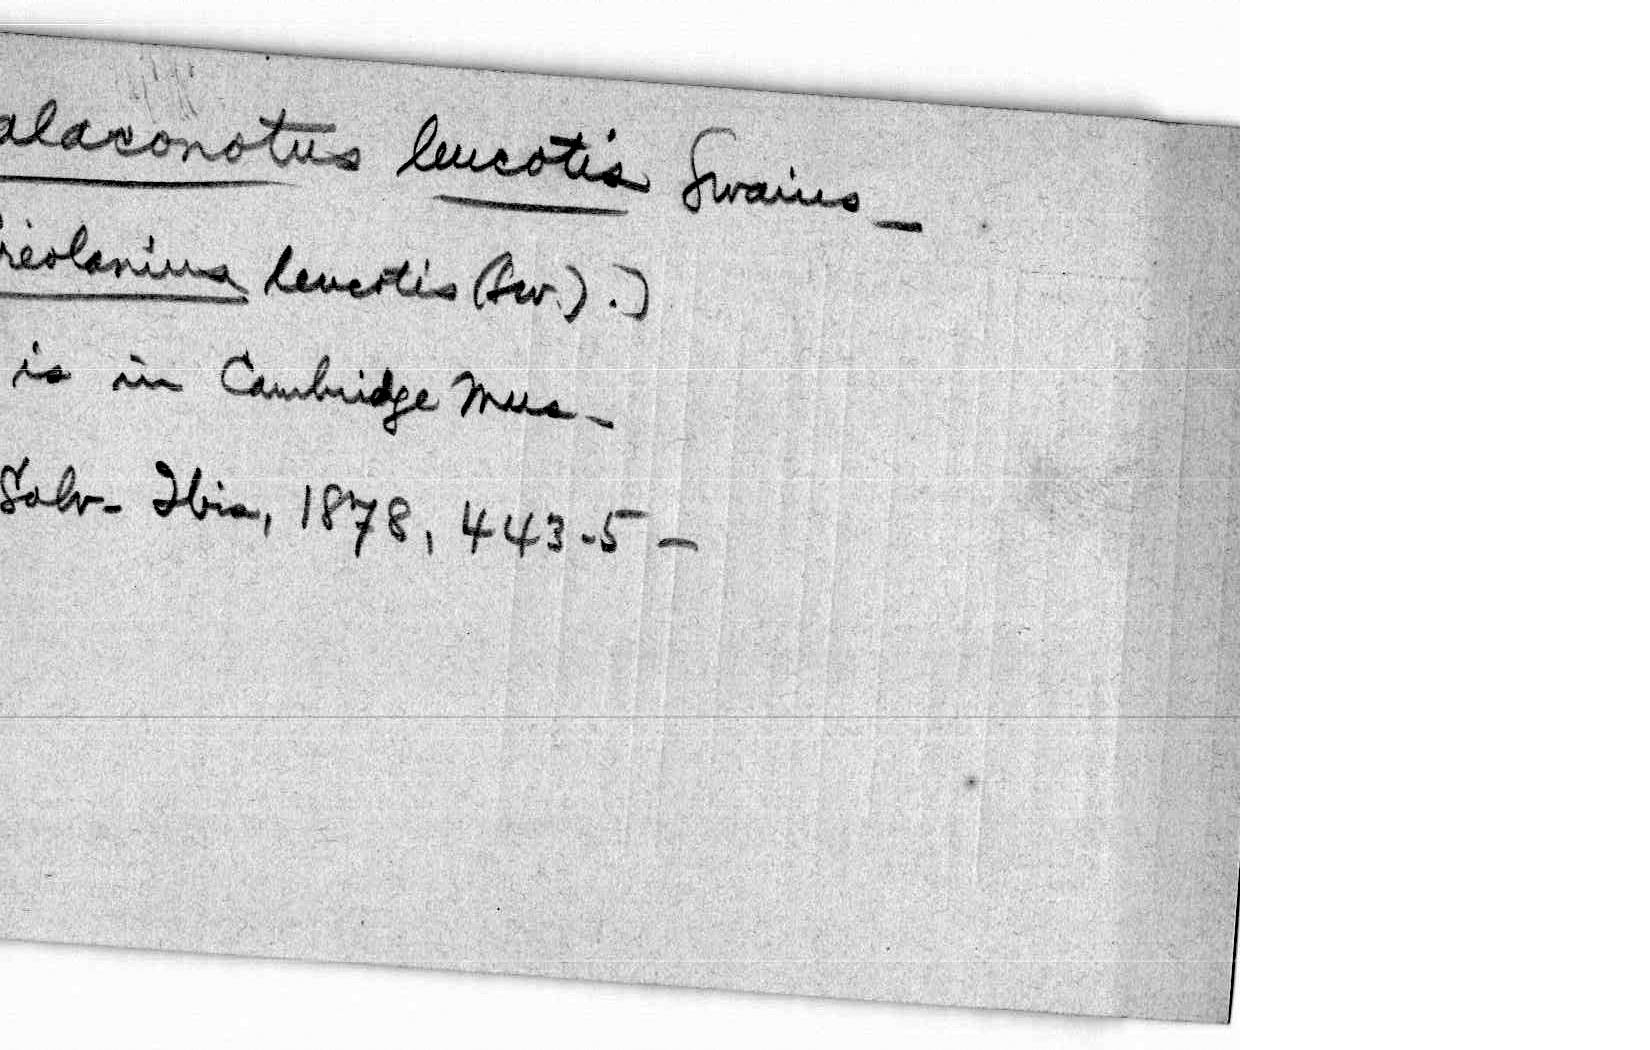 alaconotus leucotis Swains_
reolanius leucotis (Sw.).)
is in Cambridge Mus_
Salv- Ibis, 1878, 443-5 -